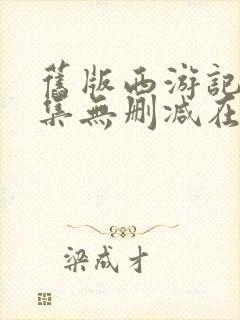 舊版西游記
集無刪减在
梁成才